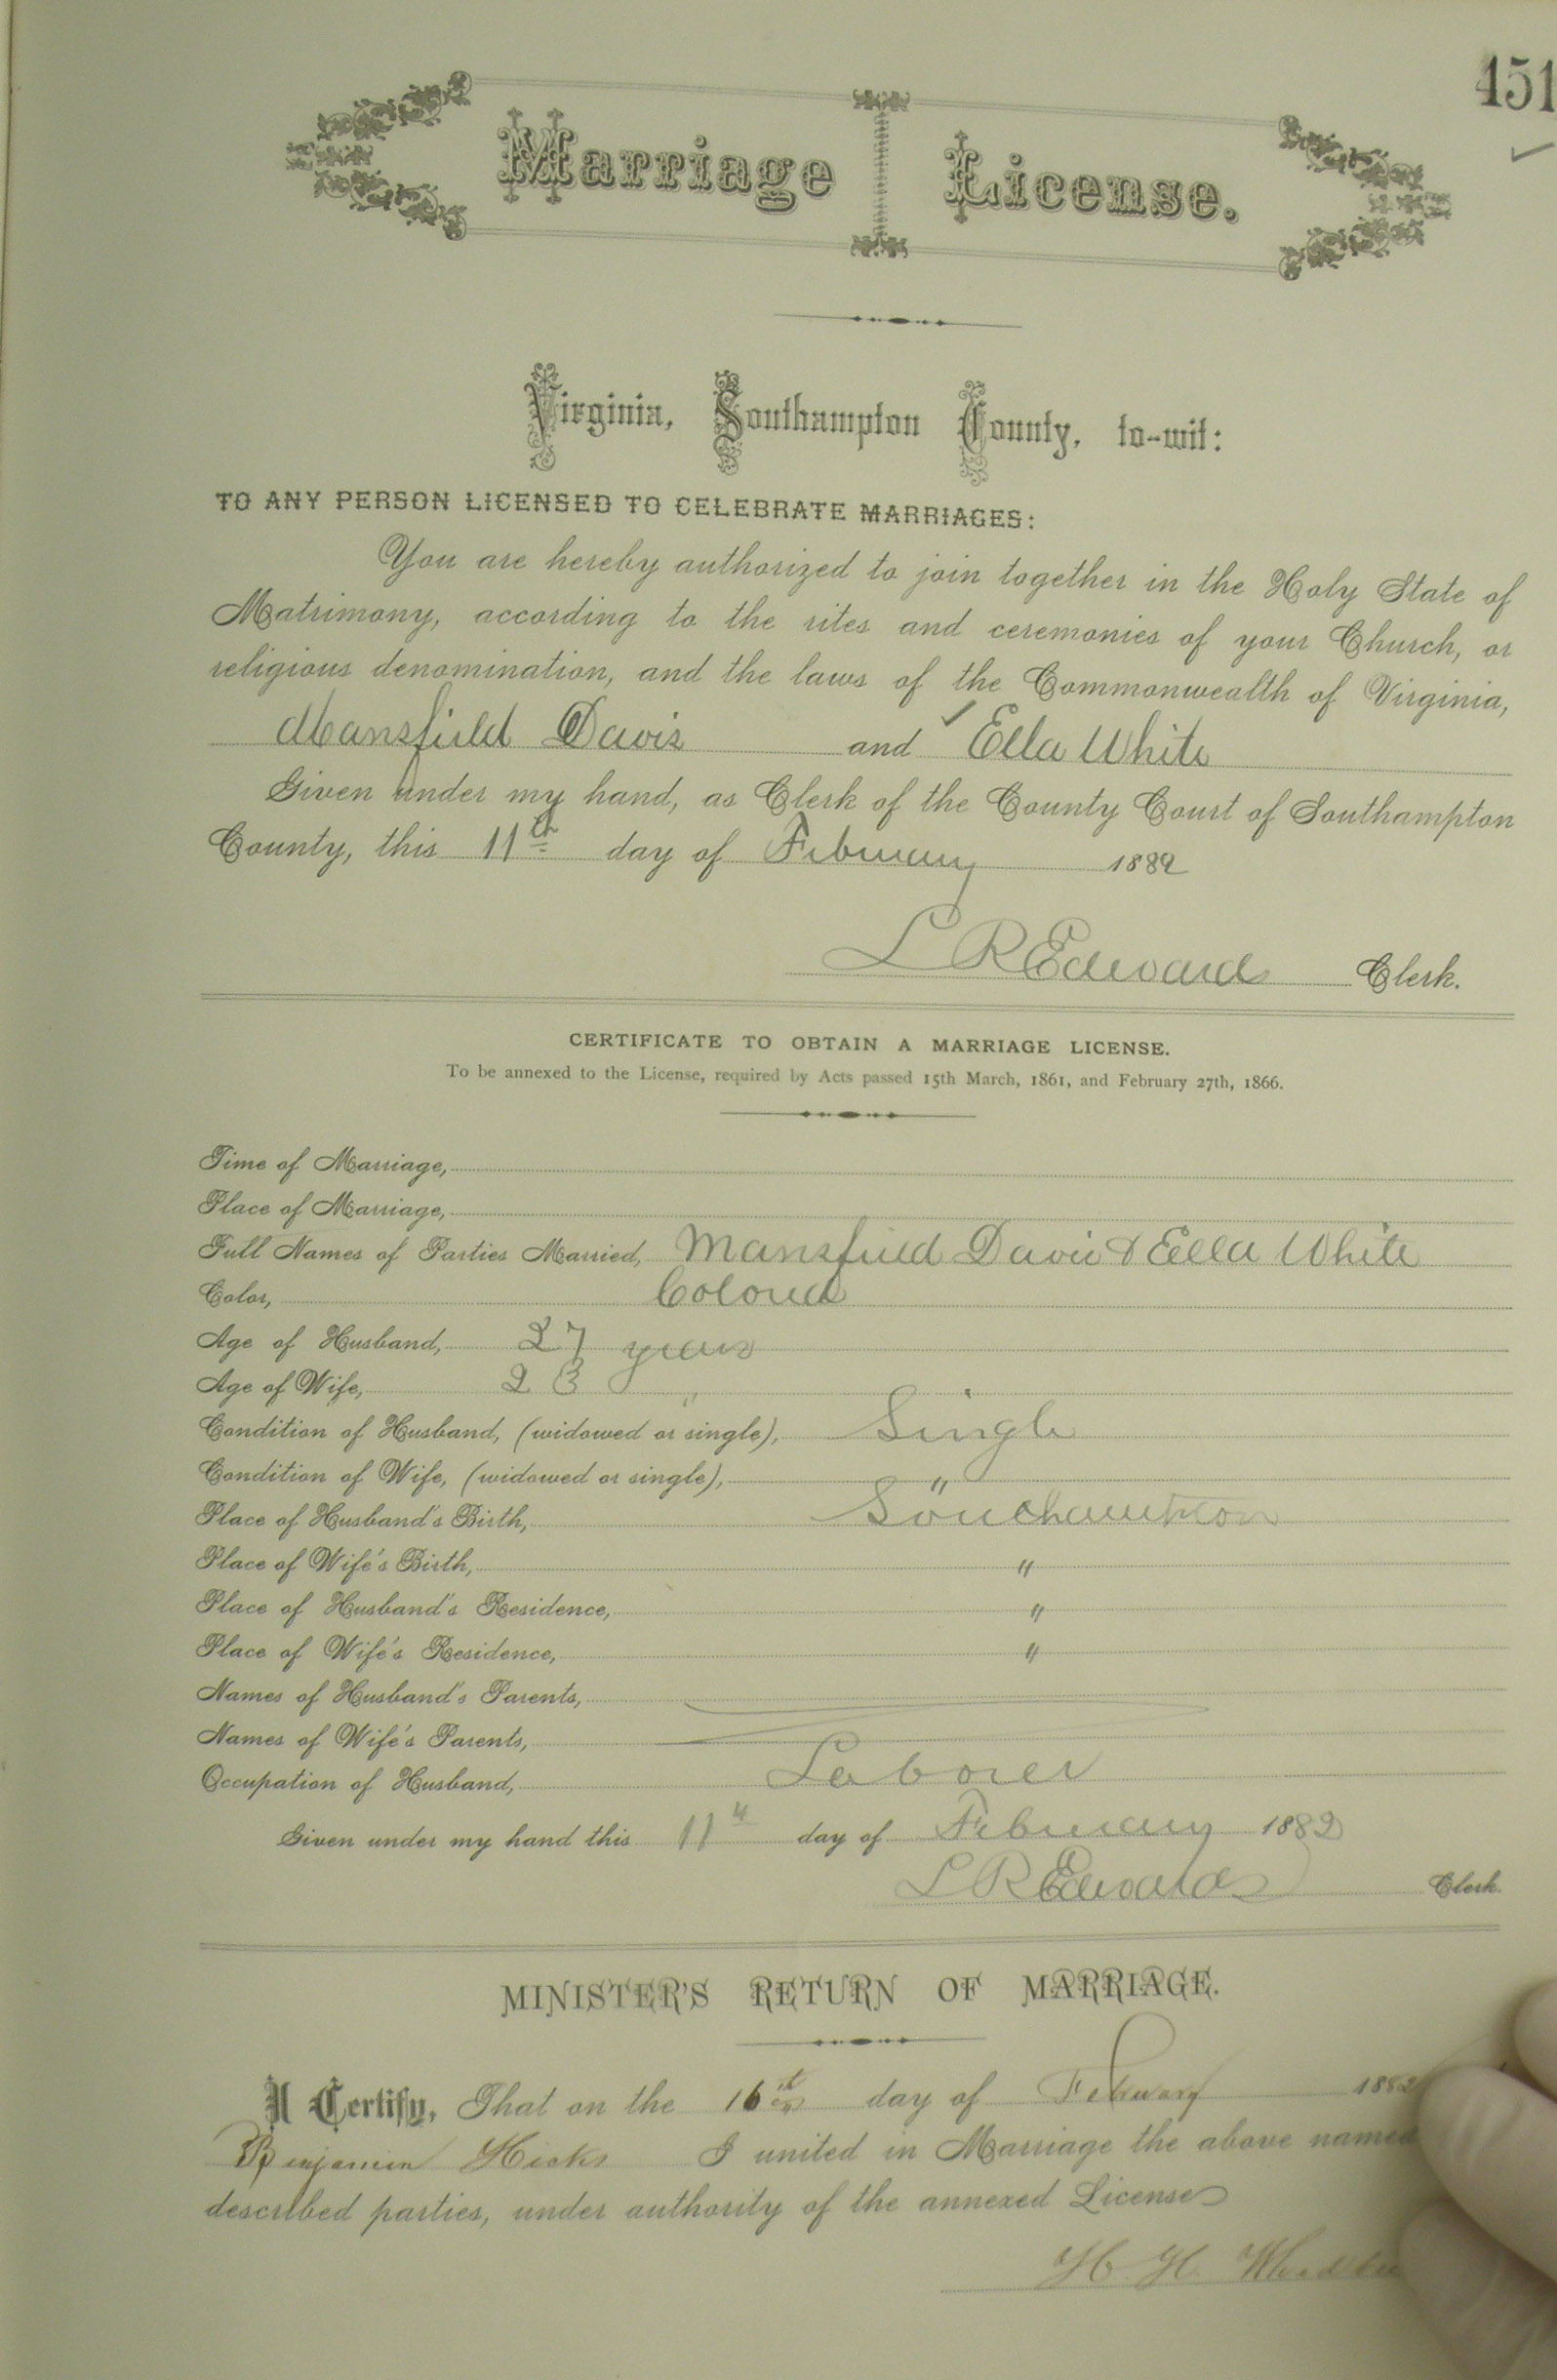 451
Marriage License.
Virginia, Southampton County, to-wit:
TO ANY PERSON LICENSED TO CELEBRATE MARRIAGES:
You are hereby authorized to join together in the Holy State of
Matrimony, according to the rites and ceremonies of your Church, or
religious denomination, and the laws of the Commonwealth of Virginia,
Mansfield Davis and Ella White
Given under my hand, as Clerk of the County Court of Southampton
County, this 11th day of February 1882
L R Edwards Clerk.
CERTIFICATE TO OBTAIN A MARRIAGE LICENSE.
To be annexed to the License, required by Acts passed 15th March, 1861, and February 27th, 1866.
Time of Marriage,
Place of Marriage,
Full Names of Parties Married, Mansfield Davis & Ella White
Color, Colored
Age of Husband, 27 years
Age of Wife, 23 "
Condition of Husband, (widowed or single), Single
Condition of Wife, (widowed or single), "
Place of Husband's Birth, Southampton
Place of Wife's Birth, "
Place of Husband's Residence, "
Place of Wife's Residence, "
Names of Husband's Parents,
Names of Wife's Parents,
Occupation of Husband, Laborer
Given under my hand this 11th day of February 1882
L R Edwards Clerk.
MINISTER'S RETURN OF MARRIAGE.
I Certify, That on the 16th day of February 1882
Benjamin Hicks I united in Marriage the above named
described parties, under authority of the annexed License
H. H.